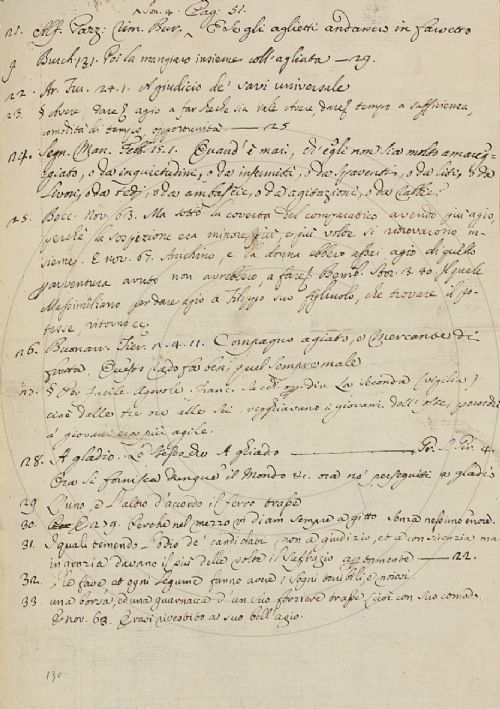 Son. 4. Pag. 51.
21. Alf. Pazz. rim. Bur. E se gli aglietti andavero in farsetto
9 Burch 131. Poi la mangiaro insieme coll' agliata — 29.
22. Fir. 24.1. A giudicio de' savi universale
23. § Avere, dare agio a far che che sia vale Avere, dare tempo a sufficienza,
comodità di tempo, opportunità. — 25
24. Segn. Man. Febb. 15.1. Quand' è mai, ch' egli non sia molto amareg-
giato, o da inquietudini, o da infermità, o da spaventi, o da liti, o da
livori, o da tedj, o da ambascie, o da agitazioni, o da
25. Bocc. nov. 63. Ma sotto la coverta del comparatico avendo più agio,
perchè la sospezione era minore, più e più volte si ritrovarono in-
sieme. E nov. 67. Anichino, e la donna ebbero assai agio di quello
parventura avuto non avrebbero, a fare Bemb. Stor. 3. 40. Il quale
Massimiliano per dare agio a Filippo suo figliuolo, che trovare il po-
tesse, ritornò ec.
26. Buonarr. Fier. 2. 4. 11. Compagno agiato, e mercante di
fretta, Questo rado fa ben, quel sempre male
§ Per facile. Agevole. La seconda (vigilia)
cioè dalle tre ore alle sei vegghiavano i giovani dell' oste, perocchè
a' giovani era più agile.
28. A gladio. Lo stesso che A ghiado —
Ora si fornisca dunque il Mondo &c. ora no' perseguiti a gladio
29 L'uno, e l'altro d'accordo il ferro trasse
30. E 129. Perchè nel mezzo vi diam sempre a gitto senza nessuno errore.
31. I quali temendo l'odio de' candidati non a giudizio, et a conscienzia ma
in grazia davano il più delle volte il suffragio apertamente — 22.
32. le fave et ogni legume fanno avere i sogni terribili, e noiosi
33. una borsa, ed una guarnacca d'un suo forziere trasse (cioè con suo comodo.
E nov. 63. Erasi rivestito a suo bell' agio.
130